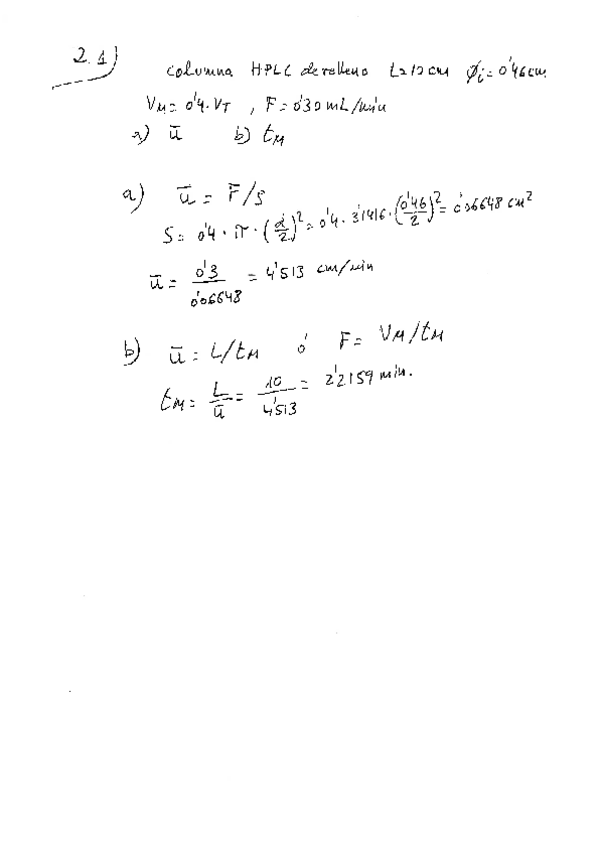 2.1)
Columna HPLC de relleno L=10cm ϕi=0'46cm
VM=0'4·VT , F=0'30mL/min
a) ū b) tM
a) ū = F/S
S= 0'4·π·(d/2)²=0'4·3'1416·(0'46/2)²=0'06648 cm²
ū = 0'3/0'06648 = 4'513 cm/min
b) ū = L/tM ó F= VM/tM
tM= L/ū = 10/4'513 = 2'2159 min.